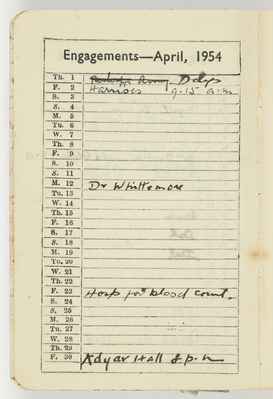 Engagements—April, 1954
Th. 1 Delys
F. 2 Harrisons 9.15 a.m
S. 3
S. 4
M. 5
Tu. 6
W. 7
Th. 8
F. 9
S. 10
S. 11
M. 12 Dr Whittemore
Tu. 13
W. 14
Th. 15
F. 16
S. 17
S. 18
M. 19
Tu. 20
W. 21
Th. 22
F. 23 Hosp for blood count.
S. 24
S. 25
M. 26
Tu. 27
W. 28
Th. 29
F. 30 Adyar Hall 8 p.m